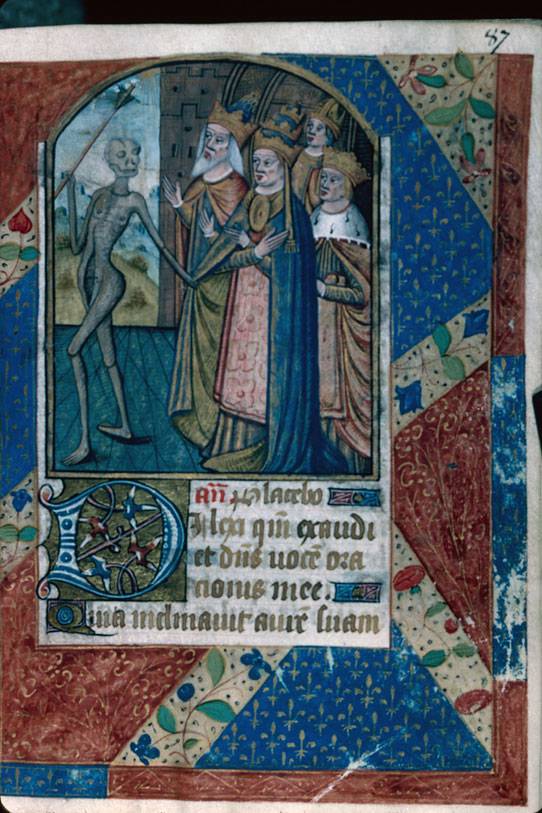 87
añ Placebo
Dilexi qm̃ exaudi
et dñs uocẽ ora
cionis mee.
Quia inclinauit aurẽ suam